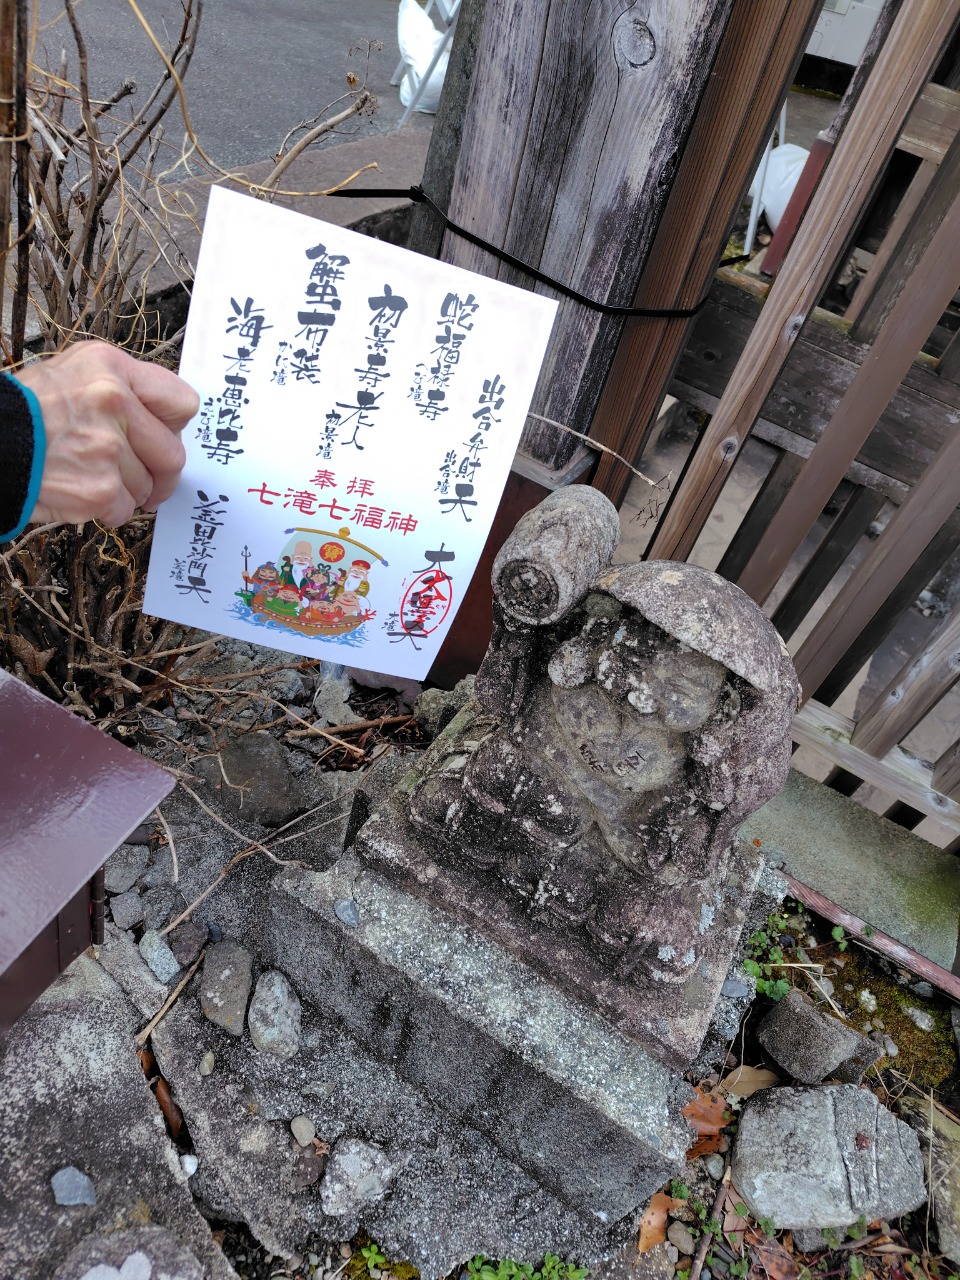 出合弁財天
出合滝
蛇福禄寿
へび滝
初景寿老人
初景滝
蟹布袋
かに滝
海老恵比寿
えび滝
釜毘沙門天
釜滝
奉拝
七滝七福神
寶
大滝